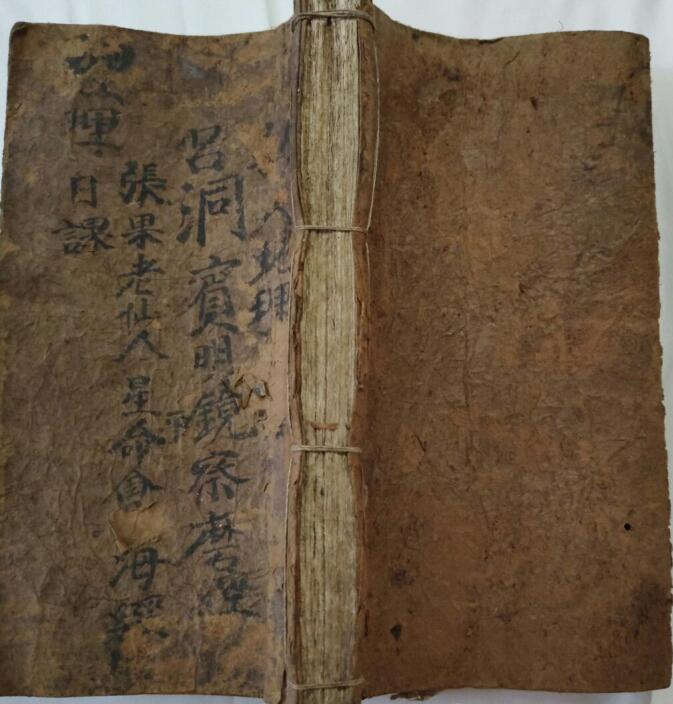 地理
呂洞賓明鏡察磨經
張果老仙人星命會海經
地理日課